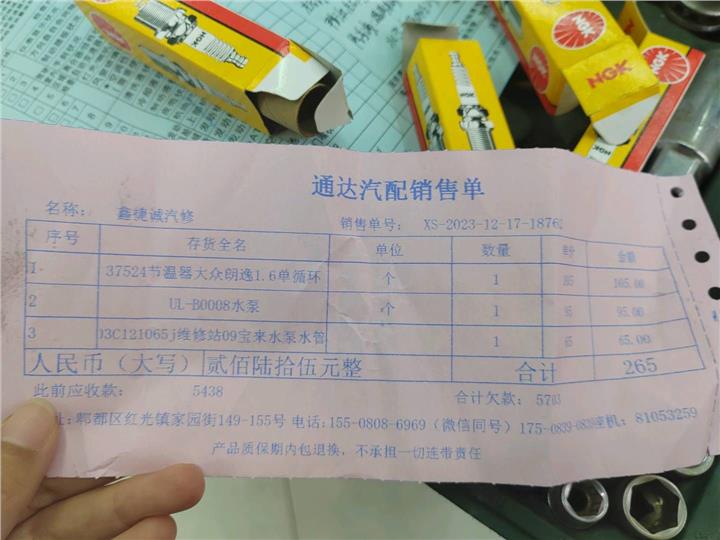 NGK
NGK
NGK
通达汽配销售单
名称: 鑫捷诚汽修 销售单号: XS-2023-12-17-1876
序号 存货全名 单位 数量 单价 金额
1 37524节温器大众朗逸1.6单循环 个 1 105 105.00
2 UL-B0008水泵 个 1 95 95.00
3 03C121065j维修站09宝来水泵水管 1 65 65.00
人民币（大写） 贰佰陆拾伍元整 合计 265
此前应收款: 5438 合计欠款: 5703
址: 郫都区红光镇家园街149-155号 电话: 155-0808-6969（微信同号）175-0839-0839座机: 81053259
产品质保期内包退换, 不承担一切连带责任